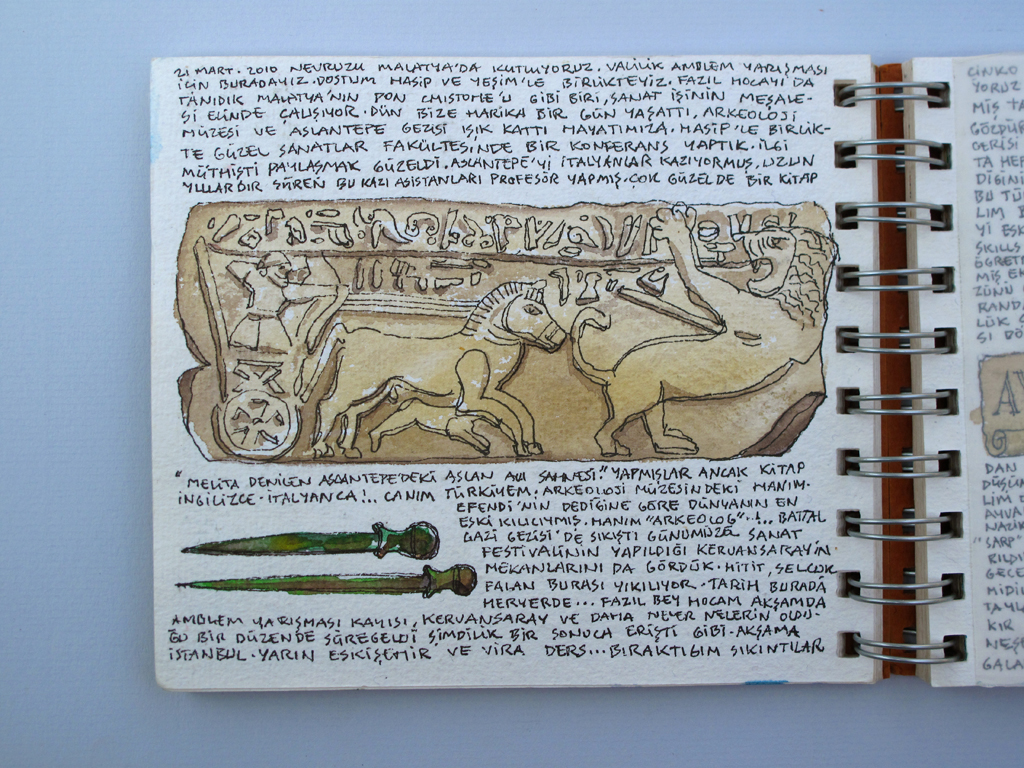 21 MART. 2010 NEVRUZU MALATYA'DA KUTLUYORUZ. VALİLİK AMBLEM YARIŞMASI
İÇİN BURADAYIZ. DOSTUM HASİP VE YEŞİM'LE BİRLİKTEYİZ. FAZIL HOCAYI DA
TANIDIK MALATYA'NIN DON 'U GİBİ BİRİ, SANAT İŞİNİN MEŞALE-
Sİ ELİNDE ÇALIŞIYOR. DÜN BİZE HARİKA BİR GÜN YAŞATTI, ARKEOLOJİ
MÜZESİ VE ASLANTEPE GEZİSİ IŞIK KATTI HAYATIMIZA. HASİP'LE BİRLİK-
TE GÜZEL SANATLAR FAKÜLTESİNDE BİR KONFERANS YAPTIK. İLGİ
MÜTHİŞTİ PAYLAŞMAK GÜZELDİ. ASLANTEPE'Yİ İTALYANLAR KAZIYORMUŞ, UZUN
YILLARDIR SÜREN BU KAZI ASİSTANLARI PROFESÖR YAPMIŞ. ÇOK GÜZEL DE BİR KİTAP
"MELİTA DENİLEN ASLANTEPE'DEKİ ASLAN AVI SAHNESİ." YAPMIŞLAR ANCAK KİTAP
İNGİLİZCE - İTALYANCA!.. CANIM TÜRKİYEM. ARKEOLOJİ MÜZESİNDEKİ HANIM-
EFENDİ'NİN DEDİĞİNE GÖRE DÜNYANIN EN
ESKİ KILICIYMIŞ. HANIM "ARKEOLOG"..!.. BATTAL
GAZİ GEZİSİ'DE SIKIŞTI GÜNÜMÜZE SANAT
FESTİVALİNİN YAPILDIĞI KERVANSARAY'IN
MEKANLARINI DA GÖRDÜK. HİTİT, SELÇUK
FALAN BURASI YIKILIYOR. TARİH BURADA
HERYERDE... FAZIL BEY HOCAM AKŞAMDA
AMBLEM YARIŞMASI KAYISI, KERVANSARAY VE DAHA NELER NELERİN OLDU-
ĞU BİR DÜZENDE SÜREGELDİ ŞİMDİLİK BİR SONUCA ERİŞTİ GİBİ. AKŞAMA
İSTANBUL. YARIN ESKİŞEHİR VE VİRA DERS... BIRAKTIĞIM SIKINTILAR
ÇİNKO
YORUZ
MIŞ TA
GERİSİ
TA HEP
DİĞİNİ
BU TÜ
LIM B
Yİ ESK
SKILLS
ÖĞRET
MİŞ
ZÜNÜ
RANDA
LÜK
SI DÖ
AY
G
DAN
DÜŞÜN
LİM D
AYVA
NAZİK
"SARP"
RILDI
GECE
MİDİL
KIR
NEŞE
GALA